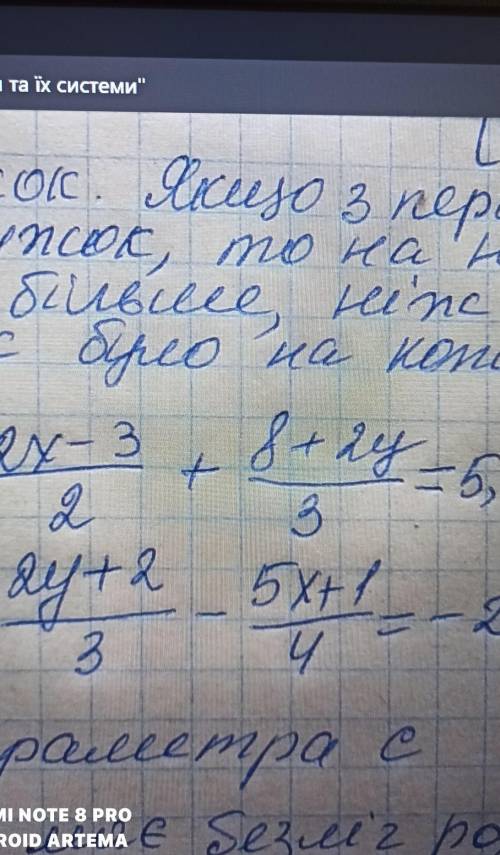 та їх системи"
ок. Якщо з пер
ужок, то на н
більше, ніж
було на кож
2x-3/2 + 8+2y/3 = 5,
2y+2/3 - 5x+1/4 = -2
раметра c
безліч ро
MI NOTE 8 PRO
ROID ARTEMA